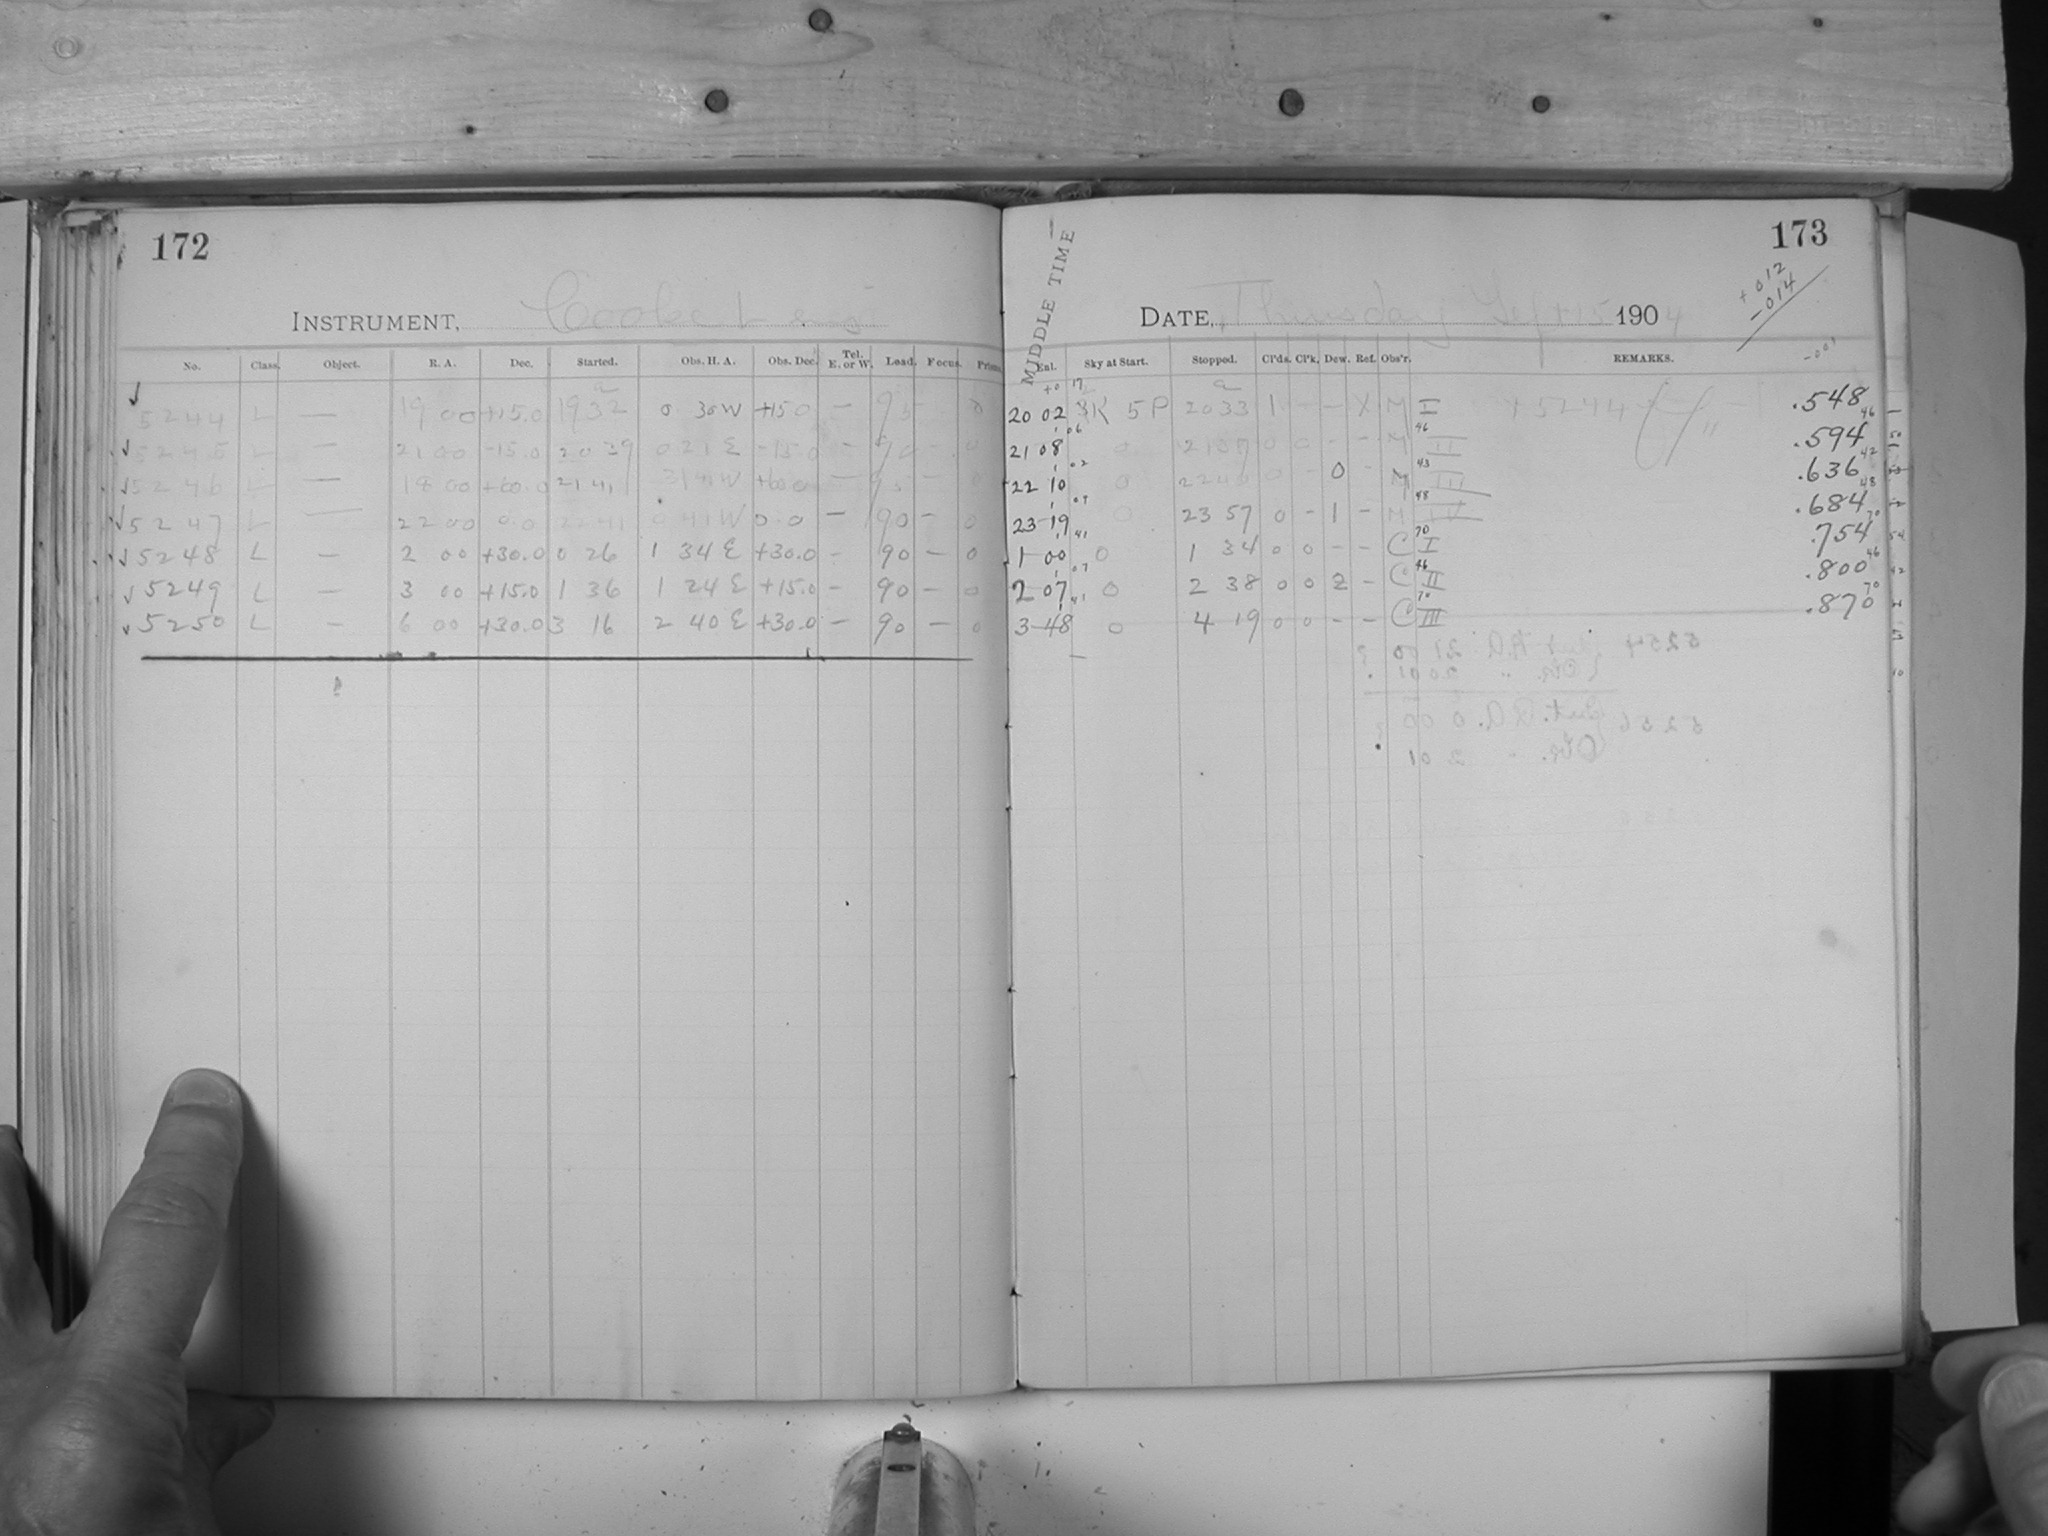 172
INSTRUMENT, Cooke Lens
No. Class. Object. R. A. Dec. Started. Obs. H. A. Obs. Dec. Tel. E. or W. Load. Focus. Prism.
5244 L — 19 00 +15.0 19 32 0 30 W +15 0 —
5245 L — 21 00 -15.0 20 39 0 21 E -15.0 — 90 — 0
5246 L — 18 00 +60.0 21 41 +60 0 —
5247 L — 22 00 0.0 22 41 0 41 W 0.0 — 90 — 0
5248 L — 2 00 +30.0 0 26 1 34 E +30.0 — 90 — 0
5249 L — 3 00 +15.0 1 36 1 24 E +15.0 — 90 — 0
5250 L — 6 00 +30.0 3 16 2 40 E +30.0 — 90 — 0
173
+012
-014
MIDDLE TIME
DATE, Thursday Sept 15 1904
Enl. Sky at Start. Stopped. Cl'ds. Cl'k. Dew. Ref. Obs'r. REMARKS.
-001
20 02 5P 20 33 1 — — X M I X 5244 .548
21 08 0 21 37 0 0 — — M II .594
22 10 0 0 — 0 — M III .636
23 19 0 23 57 0 — 1 — M IV .684
1 00 0 1 34 0 0 — — C I .754
2 07 0 2 38 0 0 2 — C II .800
3 48 0 4 19 0 0 — — C III .870